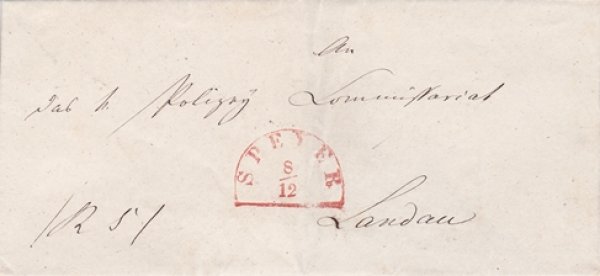 An
das k. Polizey Commissariat
SPEYER
8
12
/R 5/
Landau